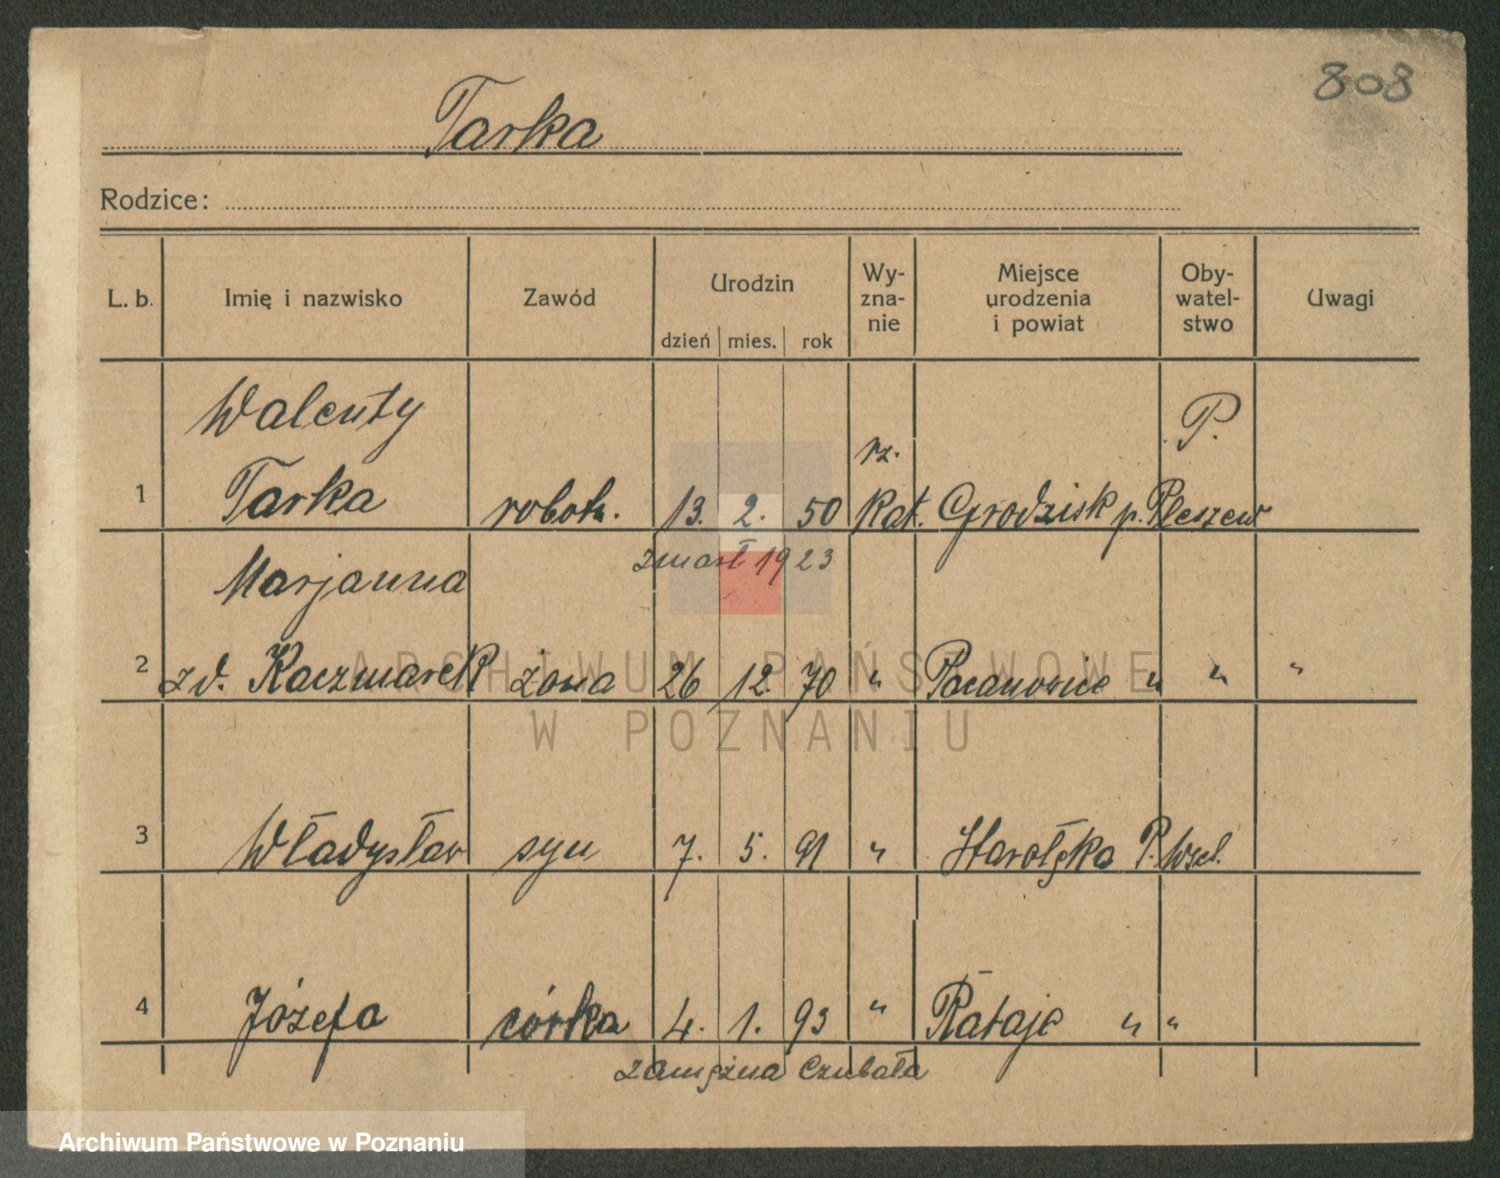 808
Tarka
Rodzice:
L. b. Imię i nazwisko Zawód Urodzin dzień mies. rok Wy-zna-nie Miejsce urodzenia i powiat Oby-watel-stwo Uwagi
Walenty P.
rz.
1 Tarka robotn. 13. 2. 50 Kat. Grodzisk p. Pleszew
zmarł 1923
Marjanna
2 zd. Kaczmarek żona 26 12. 70 " Pacanowice " " "
3 Władysław syn 7. 5. 91 " P.
4 Józefa córka 4. 1. 93 " Rataje " "
zamężna Czubała
ARCHIWUM PAŃSTWOWE
W POZNANIU
Archiwum Państwowe w Poznaniu